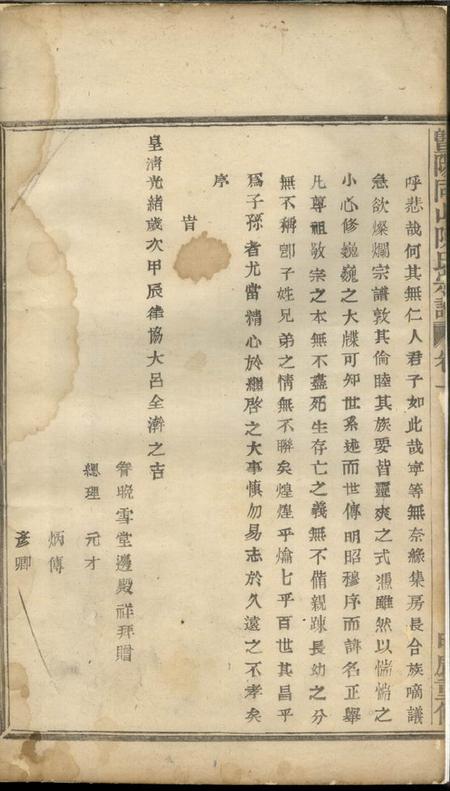 暨陽同山陳氏宗譜 卷一
呼悲哉何其無仁人君子如此哉寧等無奈緣集房長合族嘀議
急欲燦爛宗譜敦其倫睦其族要皆靈爽之式憑雖然以惴惴之
小心修巍巍之大牒可知世系述而世傳明昭穆序而諱名正舉
凡尊祖敬宗之本無不盡死生存亡之義無不備親踈長幼之分
無不稱卽子姓兄弟之情無不聯矣煌煌乎煥乎百世其昌乎
爲子孫者尤當精心於繼啓之大事慎勿易志於久遠之不孝矣
序
旹
皇淸光緒歲次甲辰律協大呂全澣之吉
晓雪堂邊殿祥拜贈
總理 元才
炳傳
彥卿